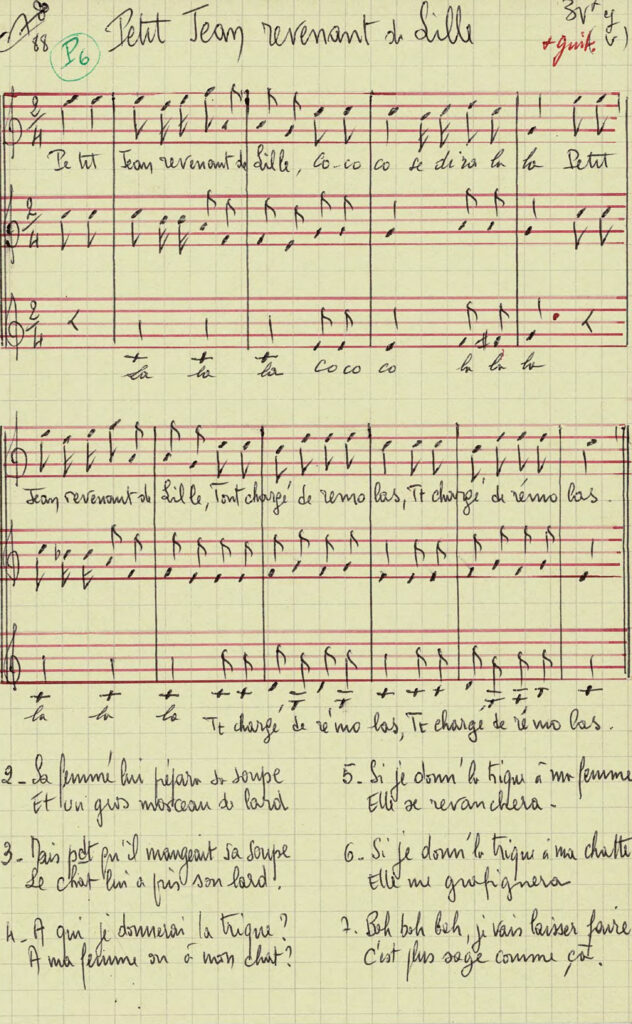 88
P6
Petit Jean revenant de Lille
3v +
+ guit.
2/4
Petit Jean revenant de Lille, co-co co se dira la la Petit
2/4
2/4
la la la co co co la la la
Jean revenant de Lille, Tout chargé de remo las, Tt chargé de rémo las.
la la la Tt chargé de rémo las, Tt chargé de rémo las.
2 - Sa femme lui prépara sa soupe
Et un gros morceau de lard
3 - Mais pdt qu'il mangeait sa soupe
Le chat lui a pris son lard.
4 - A qui je donnerai la trique?
A ma femme ou à mon chat?
5 - Si je donn' la trique à ma femme
Elle se revanchera -
6 - Si je donn' la trique à ma chatte
Elle me grafignera
7. Bah bah bah, je vais laisser faire
C'est plus sage comme ça.